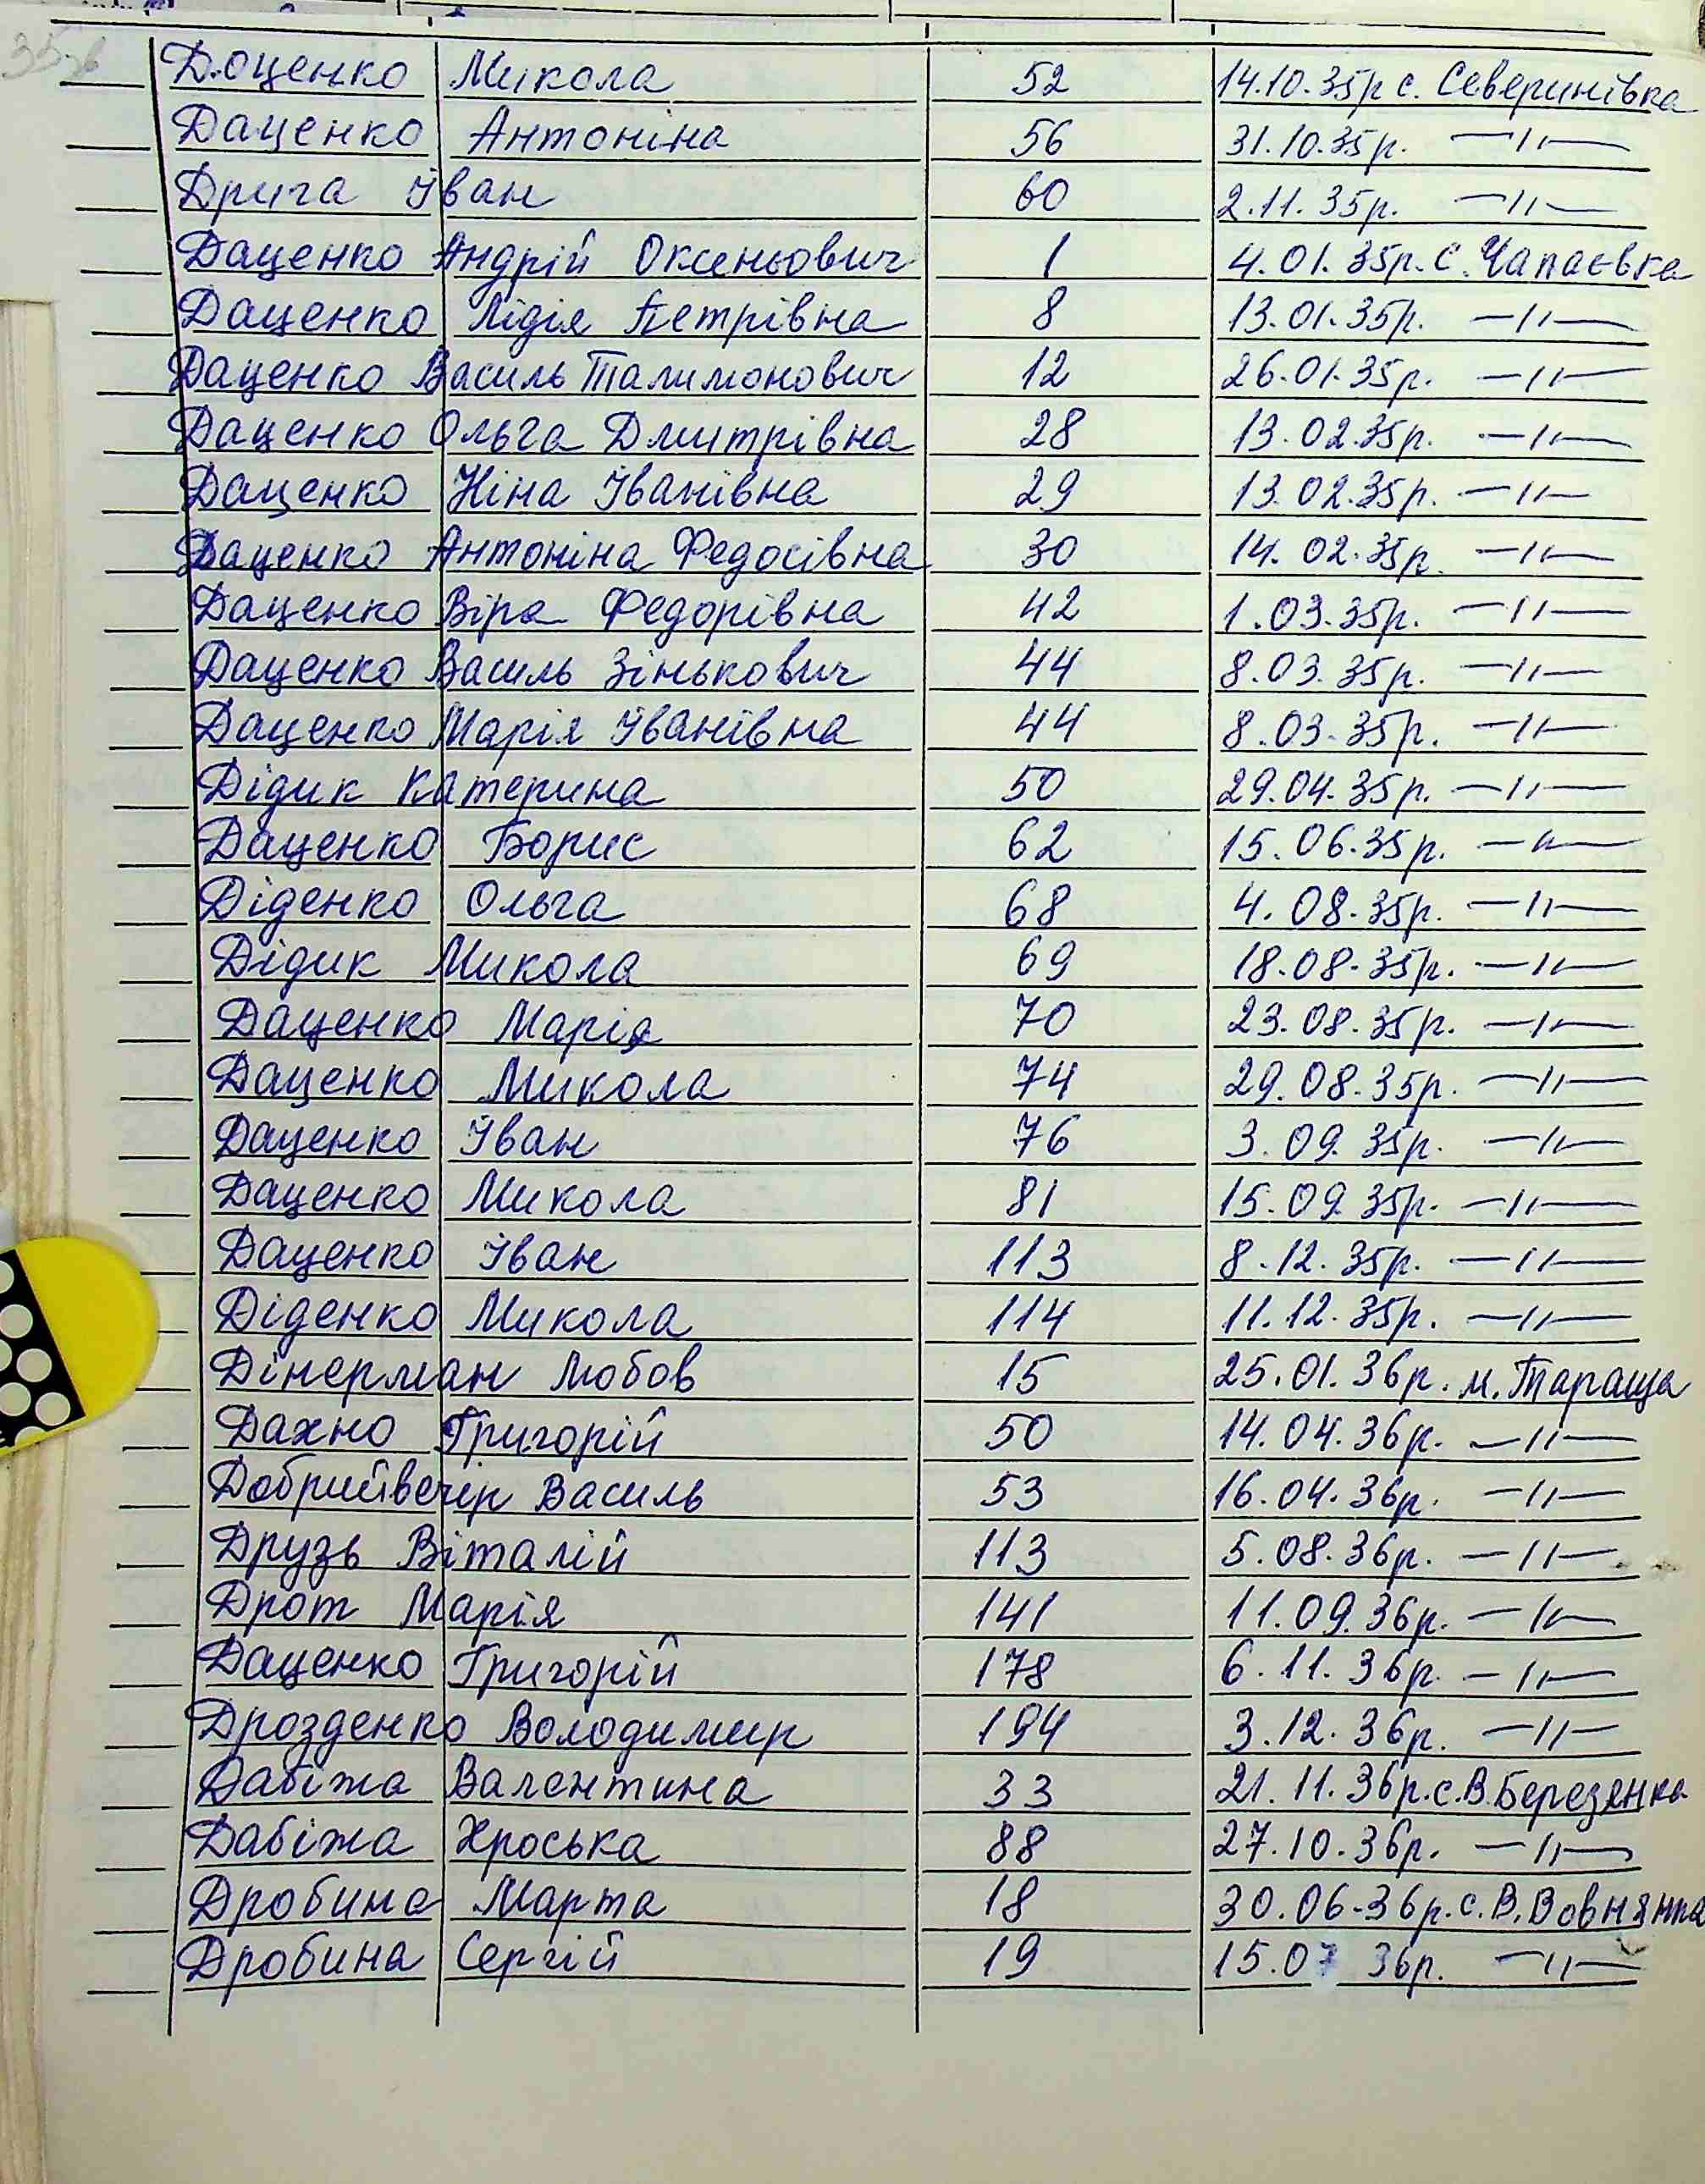 Доценко Микола 52 14.10.35р с. Северинівка
Даценко Антоніна 56 31.10.35р. —"—
Дрига Іван 60 2.11.35р. —"—
Даценко Андрій Оксеньович 1 4.01.35р. с. Чапаєвка
Даценко Лідія Петрівна 8 13.01.35р. —"—
Даценко Василь Талимонович 12 26.01.35р. —"—
Даценко Ольга Дмитрівна 28 13.02.35р. —"—
Даценко Ніна Іванівна 29 13.02.35р. —"—
Даценко Антоніна Федосівна 30 14.02.35р. —"—
Даценко Віра Федорівна 42 1.03.35р. —"—
Даценко Василь Зінькович 44 8.03.35р. —"—
Даценко Марія Іванівна 44 8.03.35р. —"—
Дідик Катерина 50 29.04.35р. —"—
Даценко Борис 62 15.06.35р. —"—
Діденко Ольга 68 4.08.35р. —"—
Дідик Микола 69 18.08.35р. —"—
Даценко Марія 70 23.08.35р. —"—
Даценко Микола 74 29.08.35р. —"—
Даценко Іван 76 3.09.35р. —"—
Даценко Микола 81 15.09.35р. —"—
Даценко Іван 113 8.12.35р. —"—
Діденко Микола 114 11.12.35р. —"—
Дінерман Любов 15 25.01.36р. м. Тараща
Дахно Григорій 50 14.04.36р. —"—
Добрийвечір Василь 53 16.04.36р. —"—
Друзь Віталій 113 5.08.36р. —"—
Дрот Марія 141 11.09.36р. —"—
Даценко Григорій 178 6.11.36р. —"—
Дрозденко Володимир 194 3.12.36р. —"—
Дабіжа Валентина 33 21.11.36р. с. В. Березянка
Дабіжа Хроська 88 27.10.36р. —"—
Дробина Марта 18 30.06.36р. с. В. Вовнянка
Дробина Сергій 19 15.07 36р. —"—